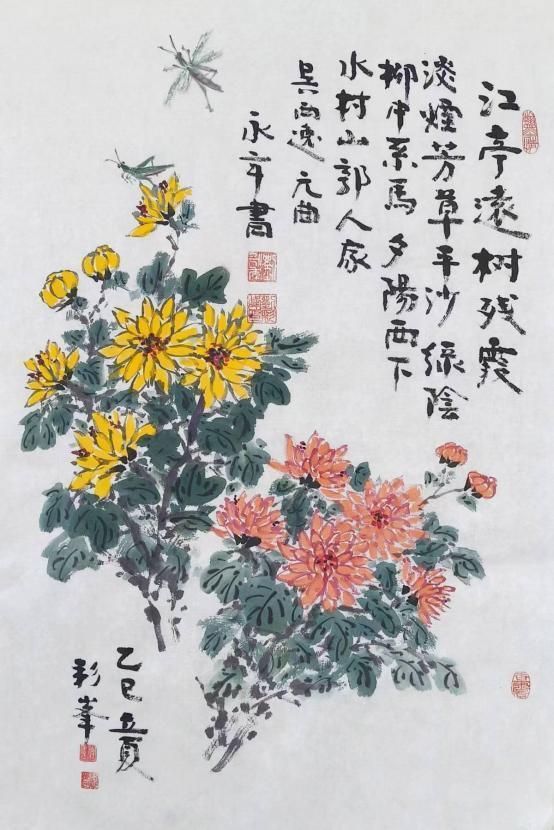 江亭遠树残霞
淡煙芳草平沙绿陰
柳中系馬夕陽西下
水村山郭人家
吴西逸元曲
永書
乙巳立夏
彩峯